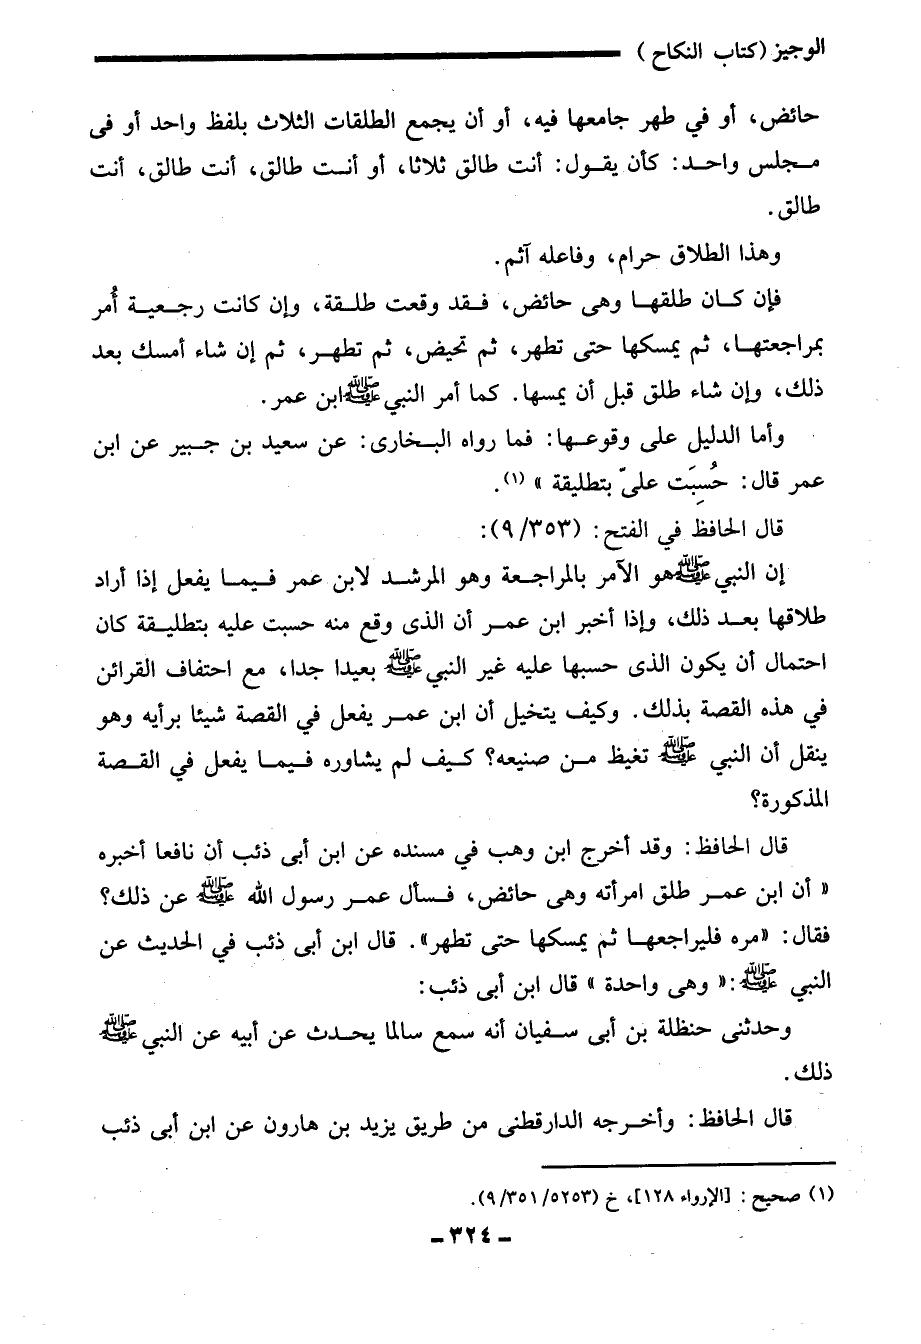 الوجيز (كتاب النكاح )
حائض، أو في طهر جامعها فيه، أو أن يجمع الطلقات الثلاث بلفظ واحد أو فى
مجلس واحد: كأن يقول: أنت طالق ثلاثا، أو أنت طالق، أنت طالق، أنت
طالق.
وهذا الطلاق حرام، وفاعله آثم.
فإن كان طلقها وهى حائض، فقد وقعت طلقة، وإن كانت رجعية أُمر
بمراجعتها، ثم يمسكها حتى تطهر، ثم تحيض، ثم تطهر، ثم إن شاء أمسك بعد
ذلك، وإن شاء طلق قبل أن يمسها. كما أمر النبي ﷺ ابن عمر.
وأما الدليل على وقوعها: فما رواه البخارى: عن سعيد بن جبير عن ابن
عمر قال: حُسِبَت علىّ بتطليقة » (١).
قال الحافظ في الفتح: (٩/٣٥٣):
إن النبي ﷺ هو الآمر بالمراجعة وهو المرشد لابن عمر فيما يفعل إذا أراد
طلاقها بعد ذلك، وإذا أخبر ابن عمر أن الذى وقع منه حسبت عليه بتطليقة كان
احتمال أن يكون الذى حسبها عليه غير النبي ﷺ بعيدا جدا، مع احتفاف القرائن
في هذه القصة بذلك. وكيف يتخيل أن ابن عمر يفعل في القصة شيئا برأيه وهو
ينقل أن النبي ﷺ تغيظ من صنيعه؟ كيف لم يشاوره فيما يفعل في القصة
المذكورة؟
قال الحافظ: وقد أخرج ابن وهب في مسنده عن ابن أبى ذئب أن نافعا أخبره
« أن ابن عمر طلق امرأته وهى حائض، فسأل عمر رسول الله ﷺ عن ذلك؟
فقال: «مره فليراجعها ثم يمسكها حتى تطهر». قال ابن أبى ذئب في الحديث عن
النبي ﷺ :« وهى واحدة » قال ابن أبى ذئب:
وحدثنى حنظلة بن أبى سفيان أنه سمع سالما يحدث عن أبيه عن النبي ﷺ
ذلك.
قال الحافظ: وأخرجه الدارقطنى من طريق يزيد بن هارون عن ابن أبى ذئب
(١) صحيح : [الإرواء ١٢٨]، خ (٩/٣٥١/٥٢٥٣).
- ٣٢٤ -